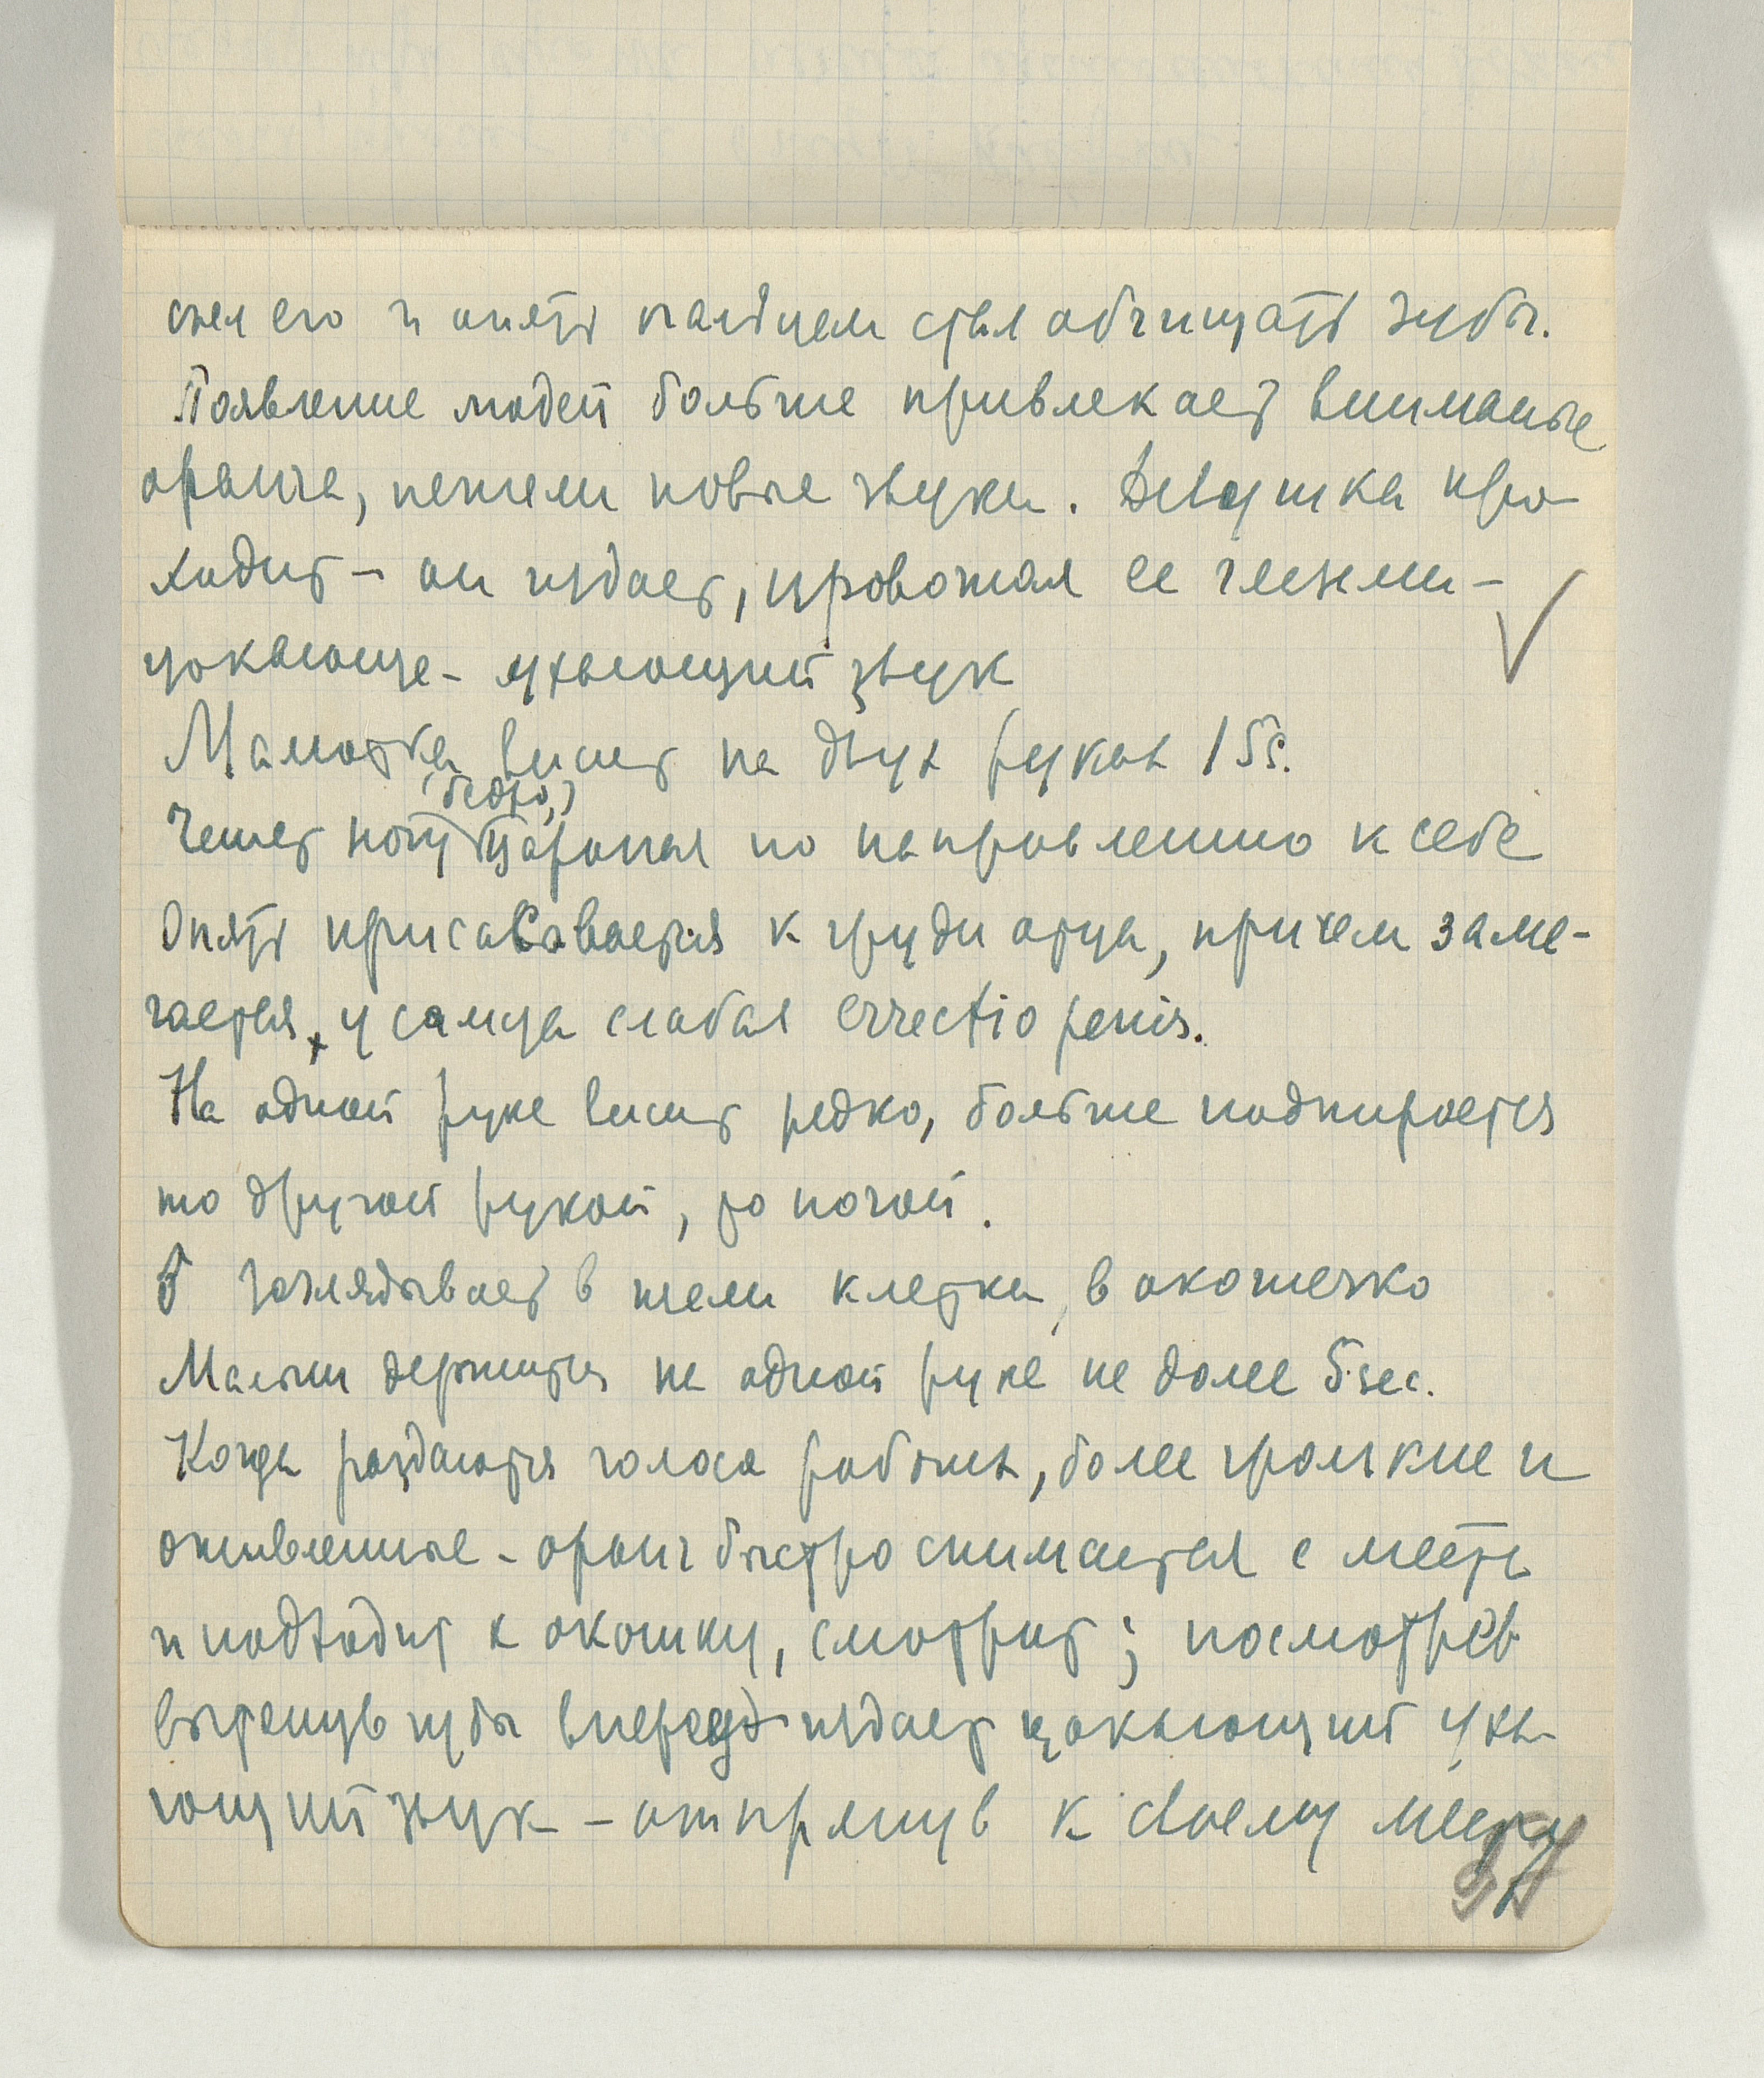 съел его и опять пальцем стал обчищать зубы.
Появление людей больше привлекает внимание
оранга, нежели новые звуки. Девушка про-
ходит – он издает, провожая ее глазами –
цокающе-ухающий звук
Малютка висит на двух руках 15s.
(бедро)
Чешет ногу царапая по направлению к себе
Опять присасывается к груди отца, причем заме-
чается, у самца слабая errectio penis.
На одной руке висит редко, больше подпирается
то другой рукой, то ногой.
♂ заглядывает в щели клетки, в окошечко
Малыш держится на одной руке не долее 5 sec.
Когда раздаются голоса рабочих, более громкие и
оживленные – оранг быстро снимается с места
и подходит к окошку, смотрит; посмотрев
вытянув губы вперед издает цокающий уха-
ющий звук – отпрянув к своему месту